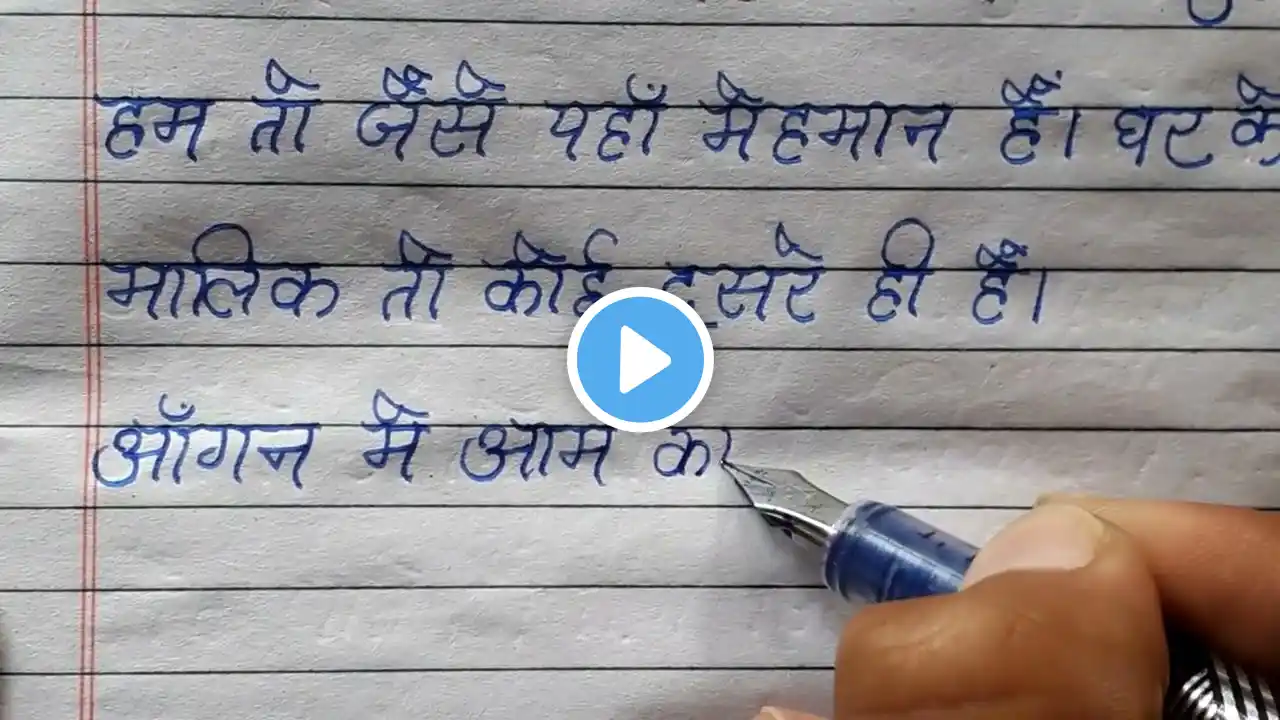 हम तो जैसे यहाँ मेहमान हैं। घर के
मालिक तो कोई दूसरे ही हैं।
आँगन में आम का